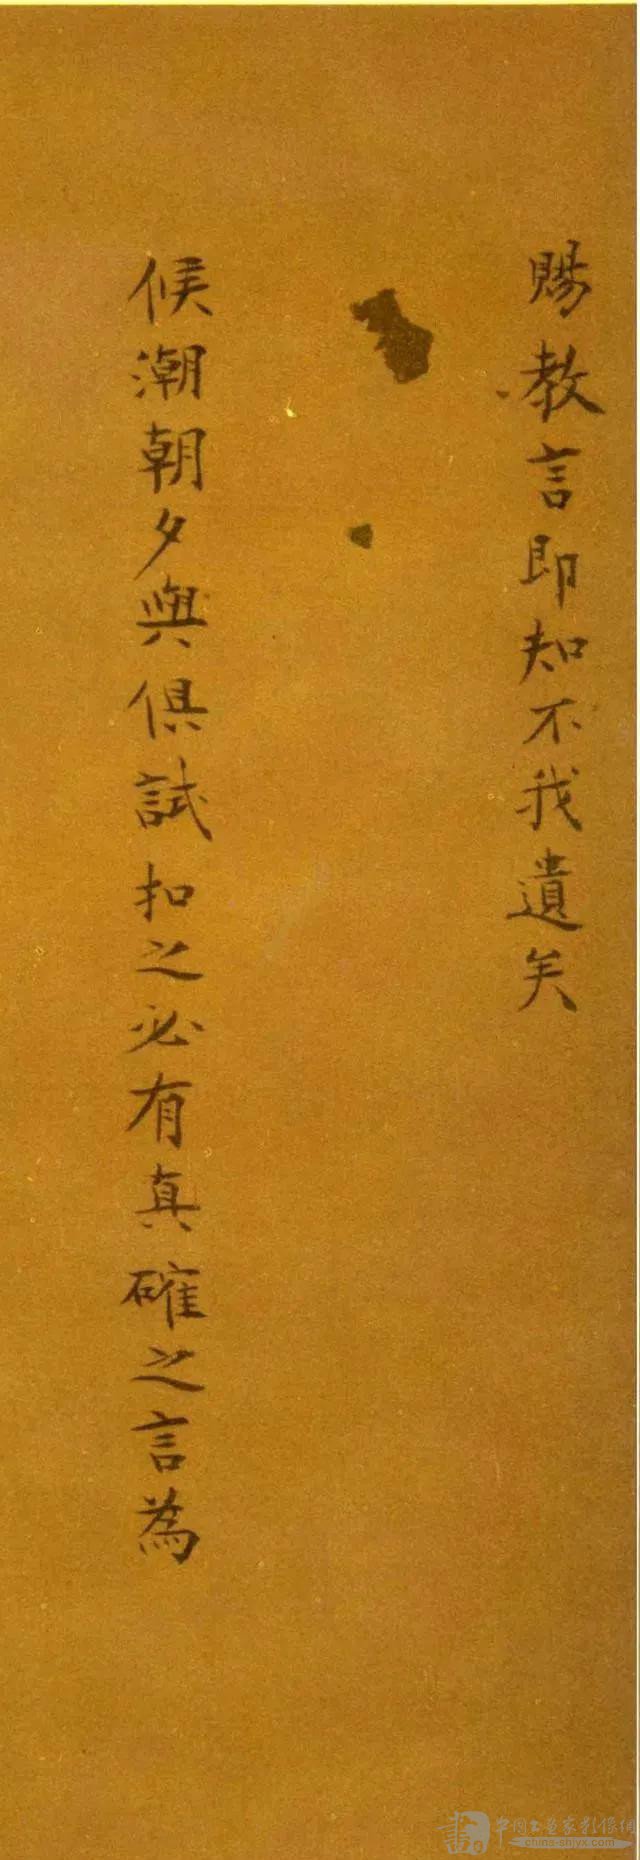 賜教言即知不我遺矣
候潮朝夕與俱試扣之必有真確之言為
中国书画家影像網
china-shjyx.com